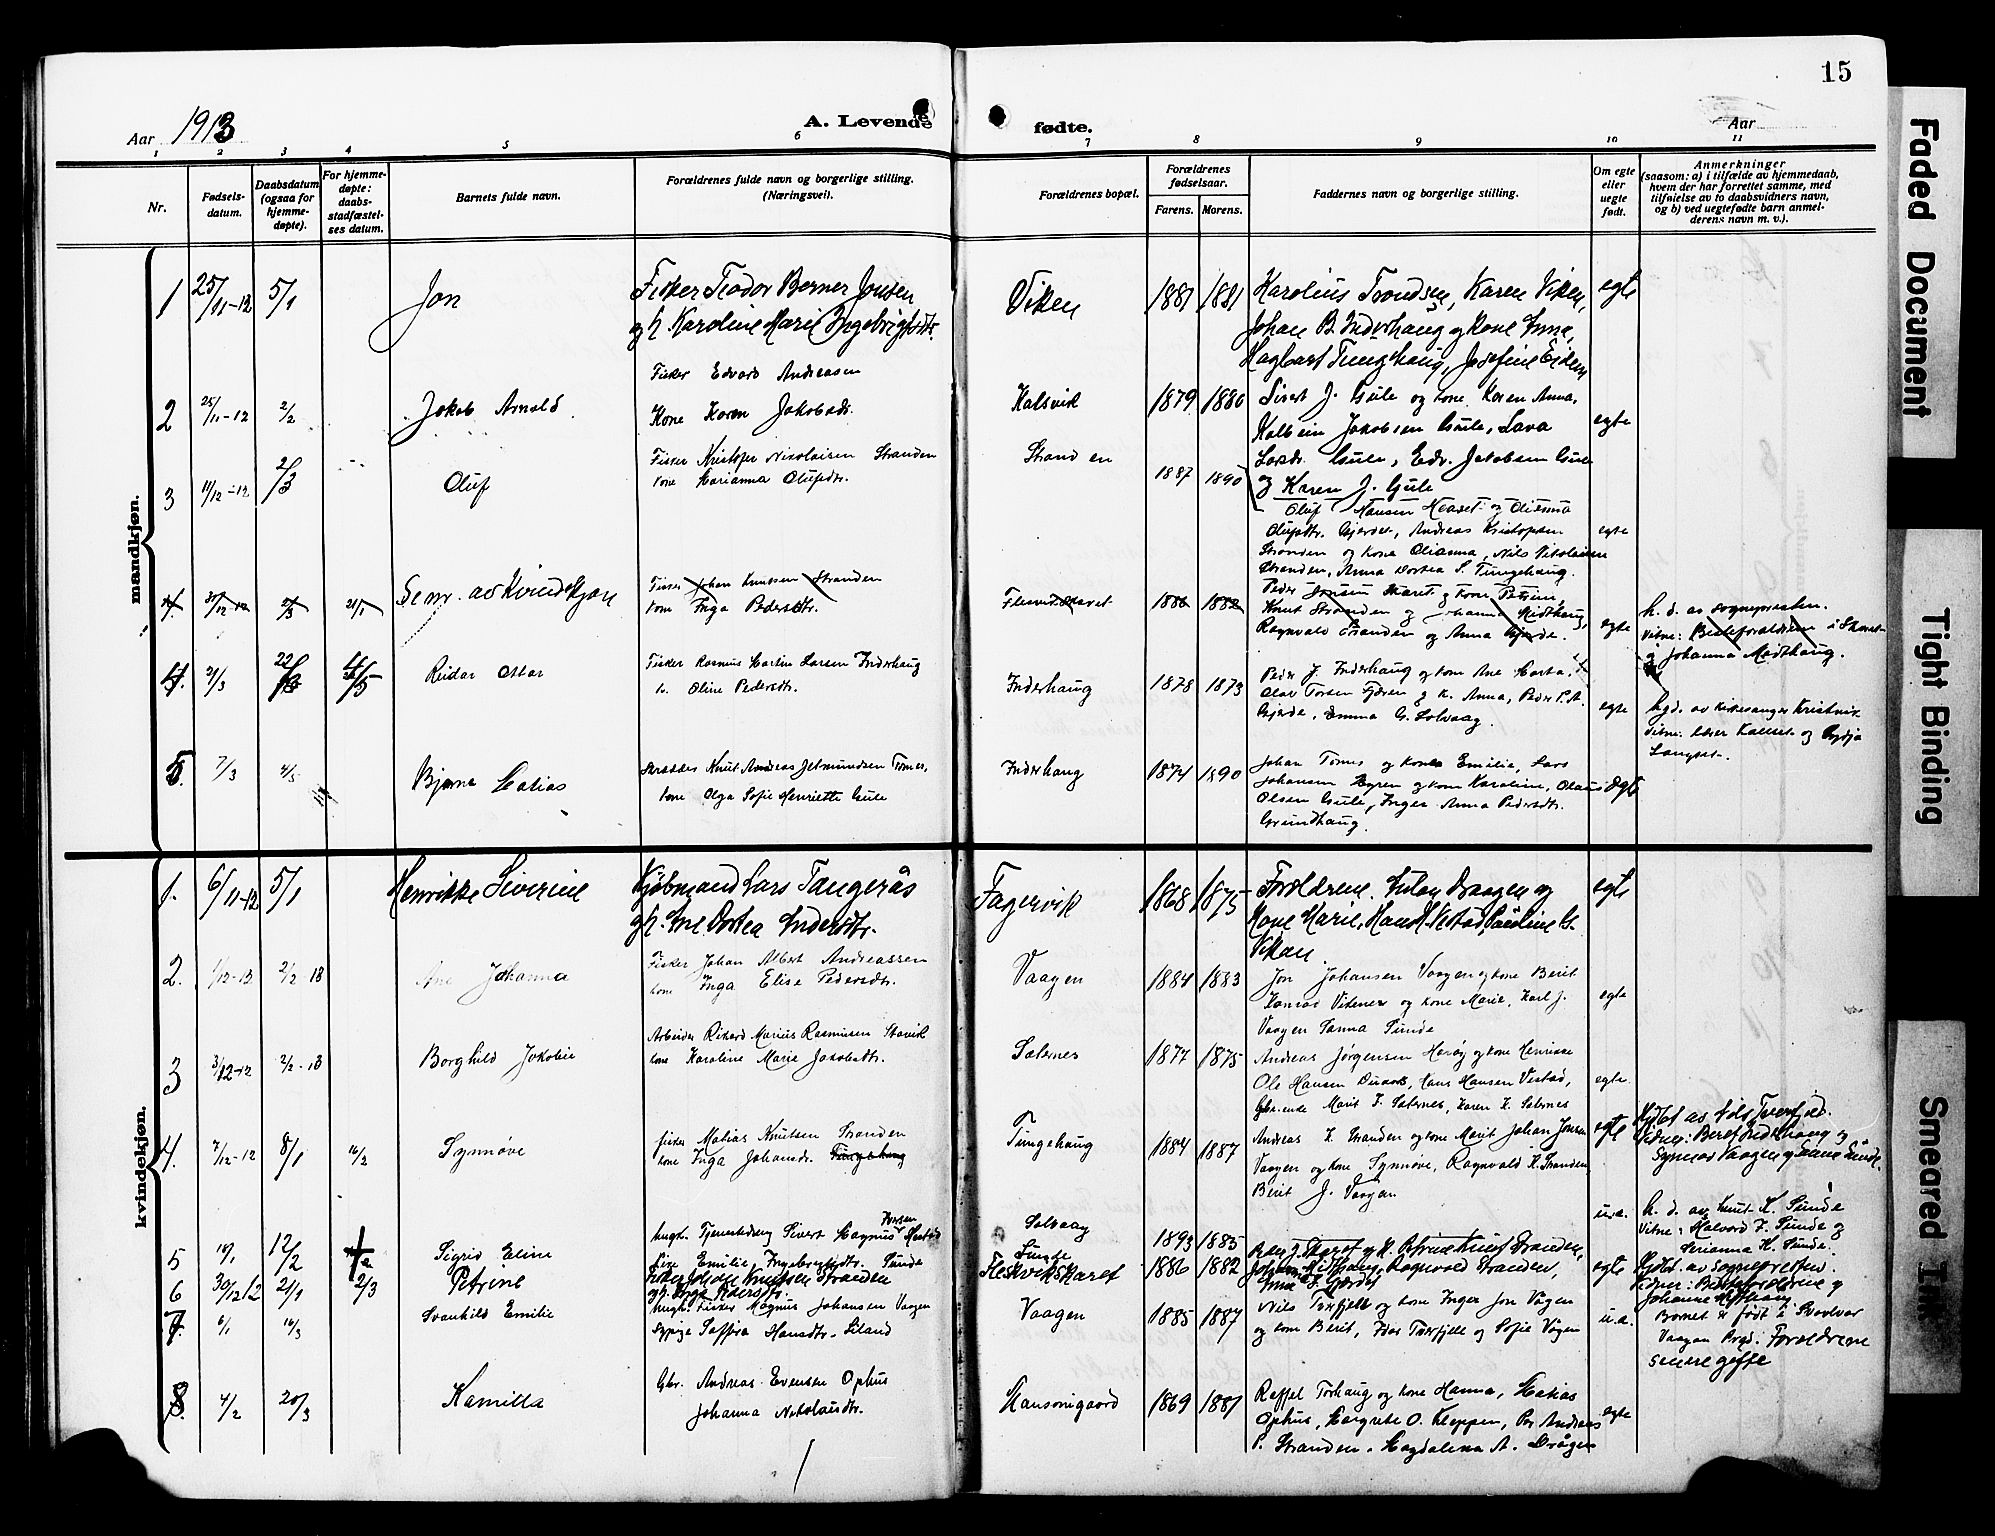 15
Aar 1913
A. Levende
fødte.
Aar
1 2 3 4 5 6 7 8 9 10 11
Nr.
Fødsels-
datum.
Daabsdatum
(ogsaa for
hjemme-
døpte).
For hjemme-
døpte:
daabs-
stadfæstel-
ses datum.
Barnets fulde navn.
Forældrenes fulde navn og borgerlige stilling.
(Næringsvei).
Forældrenes bopæl.
Forældrenes
fødselsaar.
Farens. Morens.
Faddernes navn og borgerlige stilling.
Om egte
eller
uegte
født.
Anmerkninger
(saasom: a) i tilfælde av hjemmedaab,
hvem der har forrettet samme, med
tilføielse av to daabsvidners navn,
og b) ved uegtefødte barn anmel-
derens navn m. v.).
mandkjøn.
1 25/11-12 5/1 Jon
Fisker Teodor Berner Jonsen
og h. Karoline Marie Ingebrigtsdtr.
Viken 1881 1881
Karolius Trondsen, Karen Viken,
Johan B. Inderhaug og kone Anna,
Hagbart Tungehaug, Josefine Eidem
egte
2 25/11-12 2/2 Jakob Arnold
Fisker Edvard Andreasen
Kone Karen Jakobsdr.
Kalsvik 1879 1880
Sivert J. Gule og kone Karen Anna,
Kolbein Jakobsen Gule, Lava
Larsdr. Gule, Edv. Jakobsen Gule
og Karen J. Gule
egte
3 11/12-12 2/3 Oluf
Fisker Kristofer Nikolaisen Stranden
kone Marianna Olufsdtr.
Stranden 1887 1890
Oluf Hansen og Olianna
Olufsdtr. Gjerde, Andreas Kristofersen
Stranden og kone Olianna, Nils Nikolaisen
Stranden, Anna Dortea S. Tungehaug.
egte
4. 2/3 21/1 Se nr. av Kvindekjøn
Fisker Johan Knutsen Stranden
kone Inga Pedersdtr.
Flesvikskaret 1886 1882
Peder Jonsen Skaret og kone Petrine,
Knut Stranden og Johanna Midthaug,
Ragnvald Stranden og Anna Gjerde.
egte
h. d. av sognepresten.
Vitne: Besteforældrene i Skaret
og Johanna Midthaug.
4. 21/3 22/3 4/5 Reidar Ottar
Fisker Rasmus Martin Larsen Inderhaug
h. Oline Pedersdtr.
Inderhaug 1878 1873
Peder J. Inderhaug og kone Ane Marta,
Olav Torsen Gjæren og k. Anna, Peder P. A.
Gjerde, Emma G. Solvaag.
egte
hjd. av kirkesanger Kristvik
5. 7/3 4/5 Bjarne Matias
Skrædder Knut Andreas Jetmundsen Tømes,
kone Olga Sofie Henriette Gule
Inderhaug 1874 1890
Johan Tømes og kone Emilie, Lars
Johansen og kone Karoline, Olaus
Olsen Gule, Inger Anna Pedersdtr.
Grundhaug.
egte
kvindekjøn.
1. 6/11-12 5/1 Henrikke Siverine
Kjøbmand Lars Tangerås
og h. Ane Dortea Andersdtr.
Fagervik 1868 1875
Forældrene. Anton Draagen og
kone Marie, Hans H. Vestad, Pauline G.
Vikan
egte
2. 1/12-12 2/2-13 Ane Johanna
Fisker Johan Albert Andreassen
kone Inga Elise Pedersdtr.
Vaagen 1884 1883
Jon Johansen Vaagen og kone Berit
og kone Marie, Karl J.
Vaagen Sanna Sunde
egte
3 3/12-12 2/2-13 Borghild Jakobie
Arbeider Rikard Marius Rasmussen Stavik
kone Karoline Marie Jakobsdtr.
Salernes 1877 1875
Andreas Jørgensen Harøy og kone Henrikke
Ole Hansen, Hans Hansen Vestad,
Gbr.enke Marit K. Salernes, Karen K. Salernes
egte.
4. 7/12-12 8/1 16/2 Synnøve
fisker Matias Knutsen Stranden
kone Inga Johansdr. Tungehaug
Tungehaug 1884 1887
Andreas K. Stranden og kone Marit Johan Jonsen
Vaagen og kone Synnøve, Ragnvald K. Stranden,
Berit J. Vaagen
egte
Hjdøbt av Nils Tverfjeld.
Vidner: Beret Inderhaug og
Synnøve Vaagen og
5 10/1 12/2 Sigrid Eline
Ungk. Tjenestedreng Sivert Magnus Iversen Harstad
Pike Emilie Ingebrigtsdtr. Sunde
Solvaag
Sunde
1893 1885
u.a.
h. d. av Knut K. Sunde
Vitne: Halvard K. Sunde og
Serianna K. Sunde.
6 30/12 12 21/1 2/3 Petrine
Fisker Johan Knutsen Stranden
og h. Inga Pedersdtr.
Fleskvikskaret 1886 1882
Peder J. Skaret og h. Petrine, Knut Stranden,
Johanna Midthaug, Ragnvald Stranden,
Anna J. Gjerde
egte
Hjdøbt. av sognepresten.
Vidner: Besteforældrene og
Johanna Midthaug
7. 6/1 16/3 Svanhild Emilie
Ungk. Fisker Magnus Johansen Vaagen
Sypige Saffira Hansdtr. Eiland
Vaagen 1885 1887
Nils Tverfjell og kone Inger, Jon Vågen
og kone Berit, Peder Tverfjell og Sofie Vågen
u.a.
Barnet er født i Svolvær
Vaagan Prgd. Forældrene
senere gifte
8. 4/2 20/3 Kamilla
Gbr. Andreas Evensen Ophus
Johanna Nikolaisdtr.
Hansomigaard 1869 1881
Raffel Torhaug og kone Hanna, Matias
Ophus, Margrete O. Kleppen, Per Andreas
P. Stranden. Magdalena A. Drågen
egte
Faded Document
Tight Binding
Smeared Ink